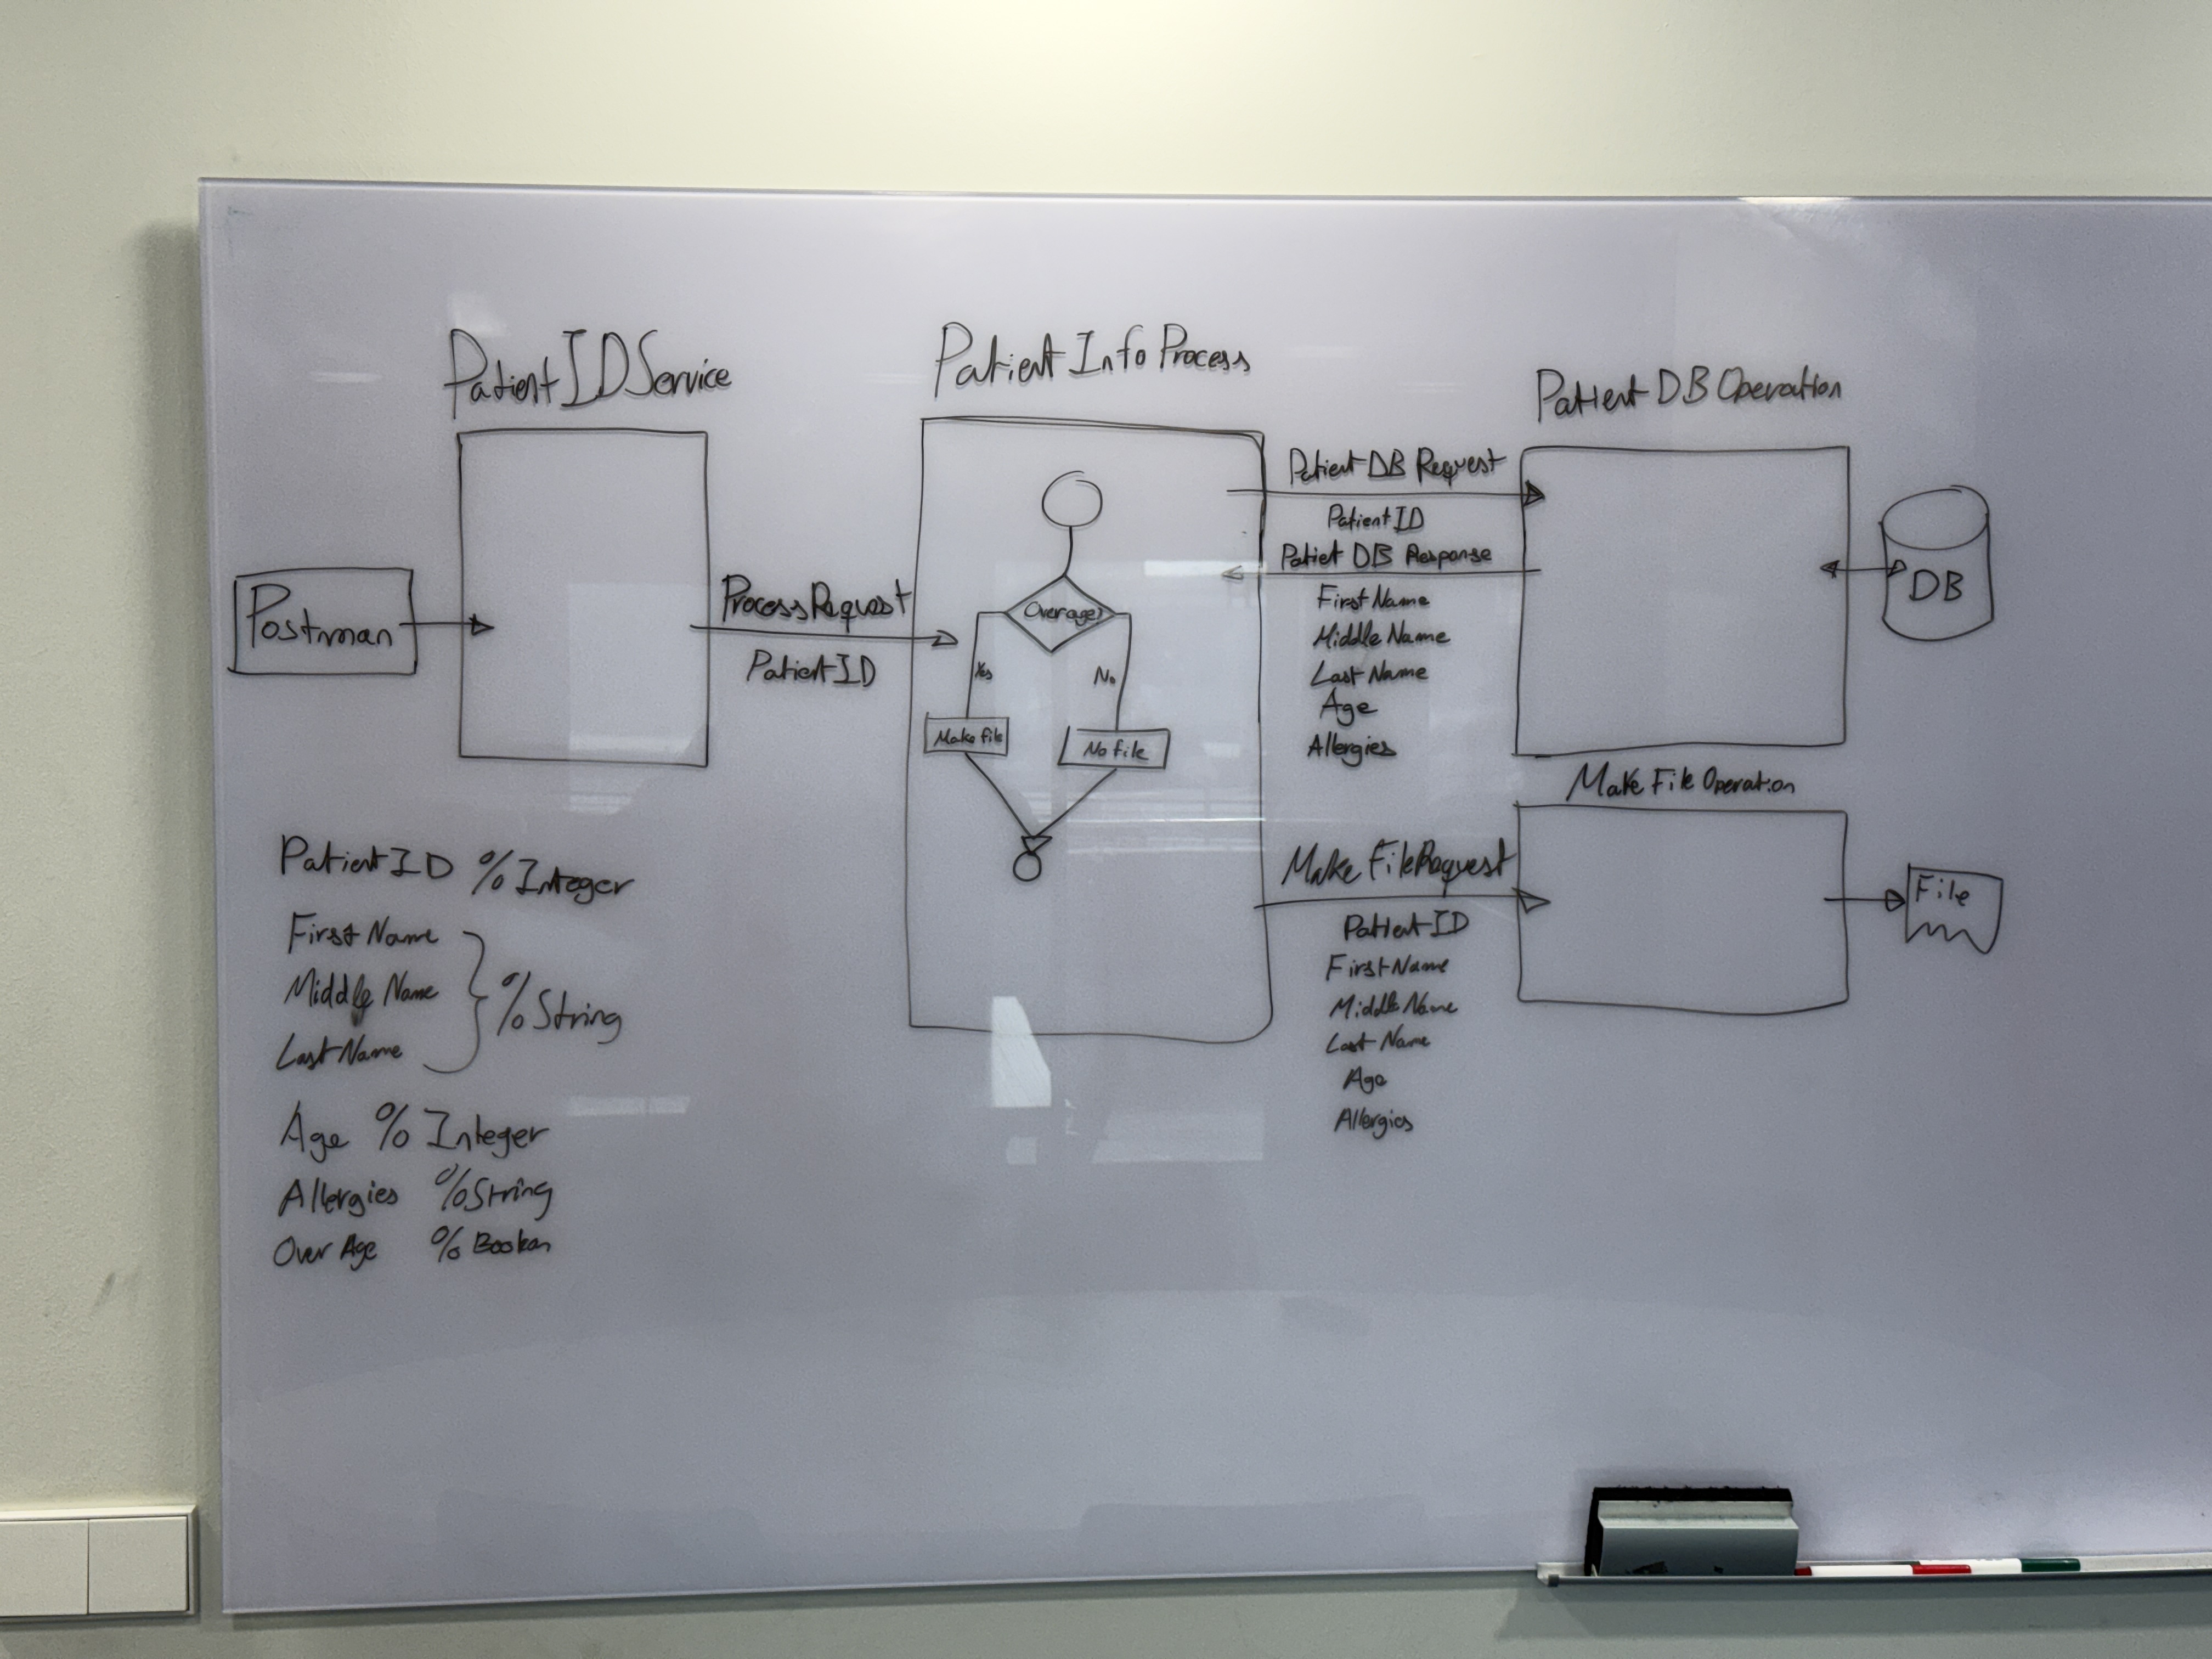 PatientIDService
Patient Info Process
Patient DB Operation
Postman
ProcessRequest
PatientID
Overage?
Yes
No
Make file
No file
Patient DB Request
PatientID
Patiet DB Response
First Name
Middle Name
Last Name
Age
Allergies
DB
Make File Operation
Make FileRequest
PatientID
FirstName
Middle Name
Last Name
Age
Allergies
File
PatientID %Integer
First Name
Middle Name
Last Name
%String
Age %Integer
Allergies %String
Over Age %Boolean